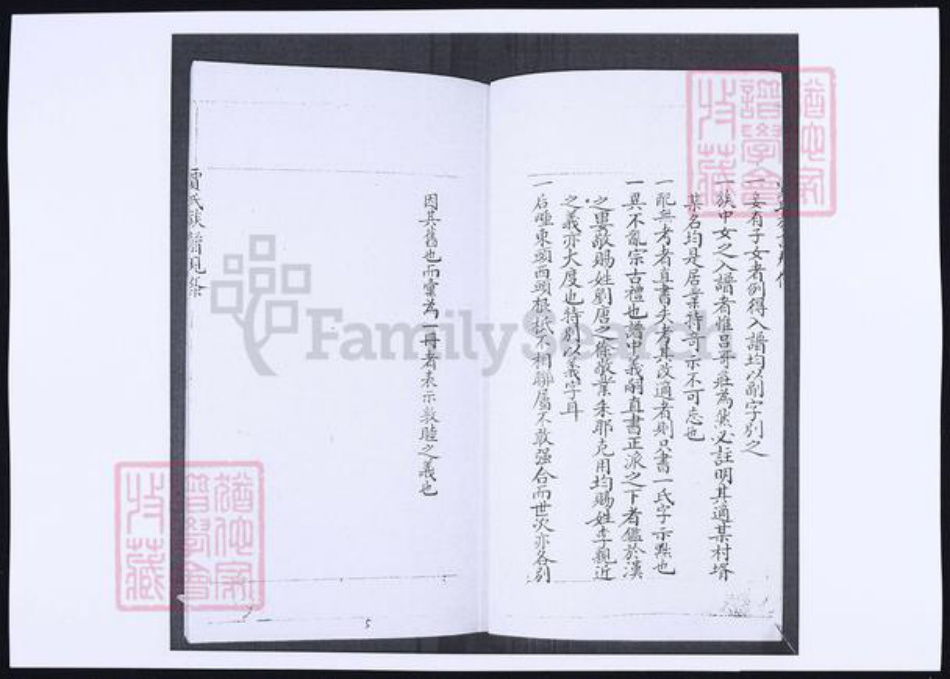 一妾有子女者例得入譜均以副字別之
一族中女之入譜者惟呂哥莊為然必註明其適某村壻
某名均是居業待字示不可忘也
一配無考者直書失考其改適者則只書一氏字示黜也
一異不亂宗古禮也譜中義嗣直書正派之下者鑑於漢
之婁敬賜姓劉唐之徐敬業朱耶克用均賜姓李親近
之義亦大度也特別以義字耳
一后疃東頭西頭根柢不相聯屬不敢强合而世次亦各别
因其舊也而彙為一冊者表示敦睦之義也
賈氏族譜凡條
5
FamilySearch
譜學會
收藏
譜學會
收藏